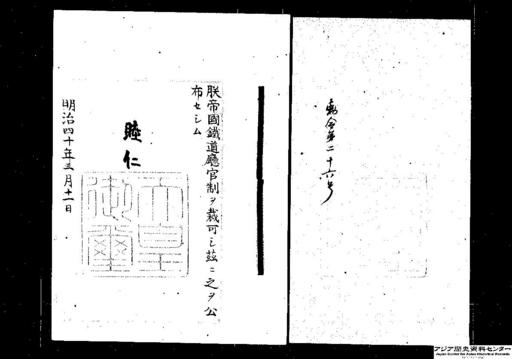 勅令第二十六号
朕帝國鐵道廳官制ヲ裁可シ茲ニ之ヲ公
布セシム
睦仁
天皇
御璽
明治四十年三月十一日
アジア歴史資料センター
Japan Center for Asian Historical Records